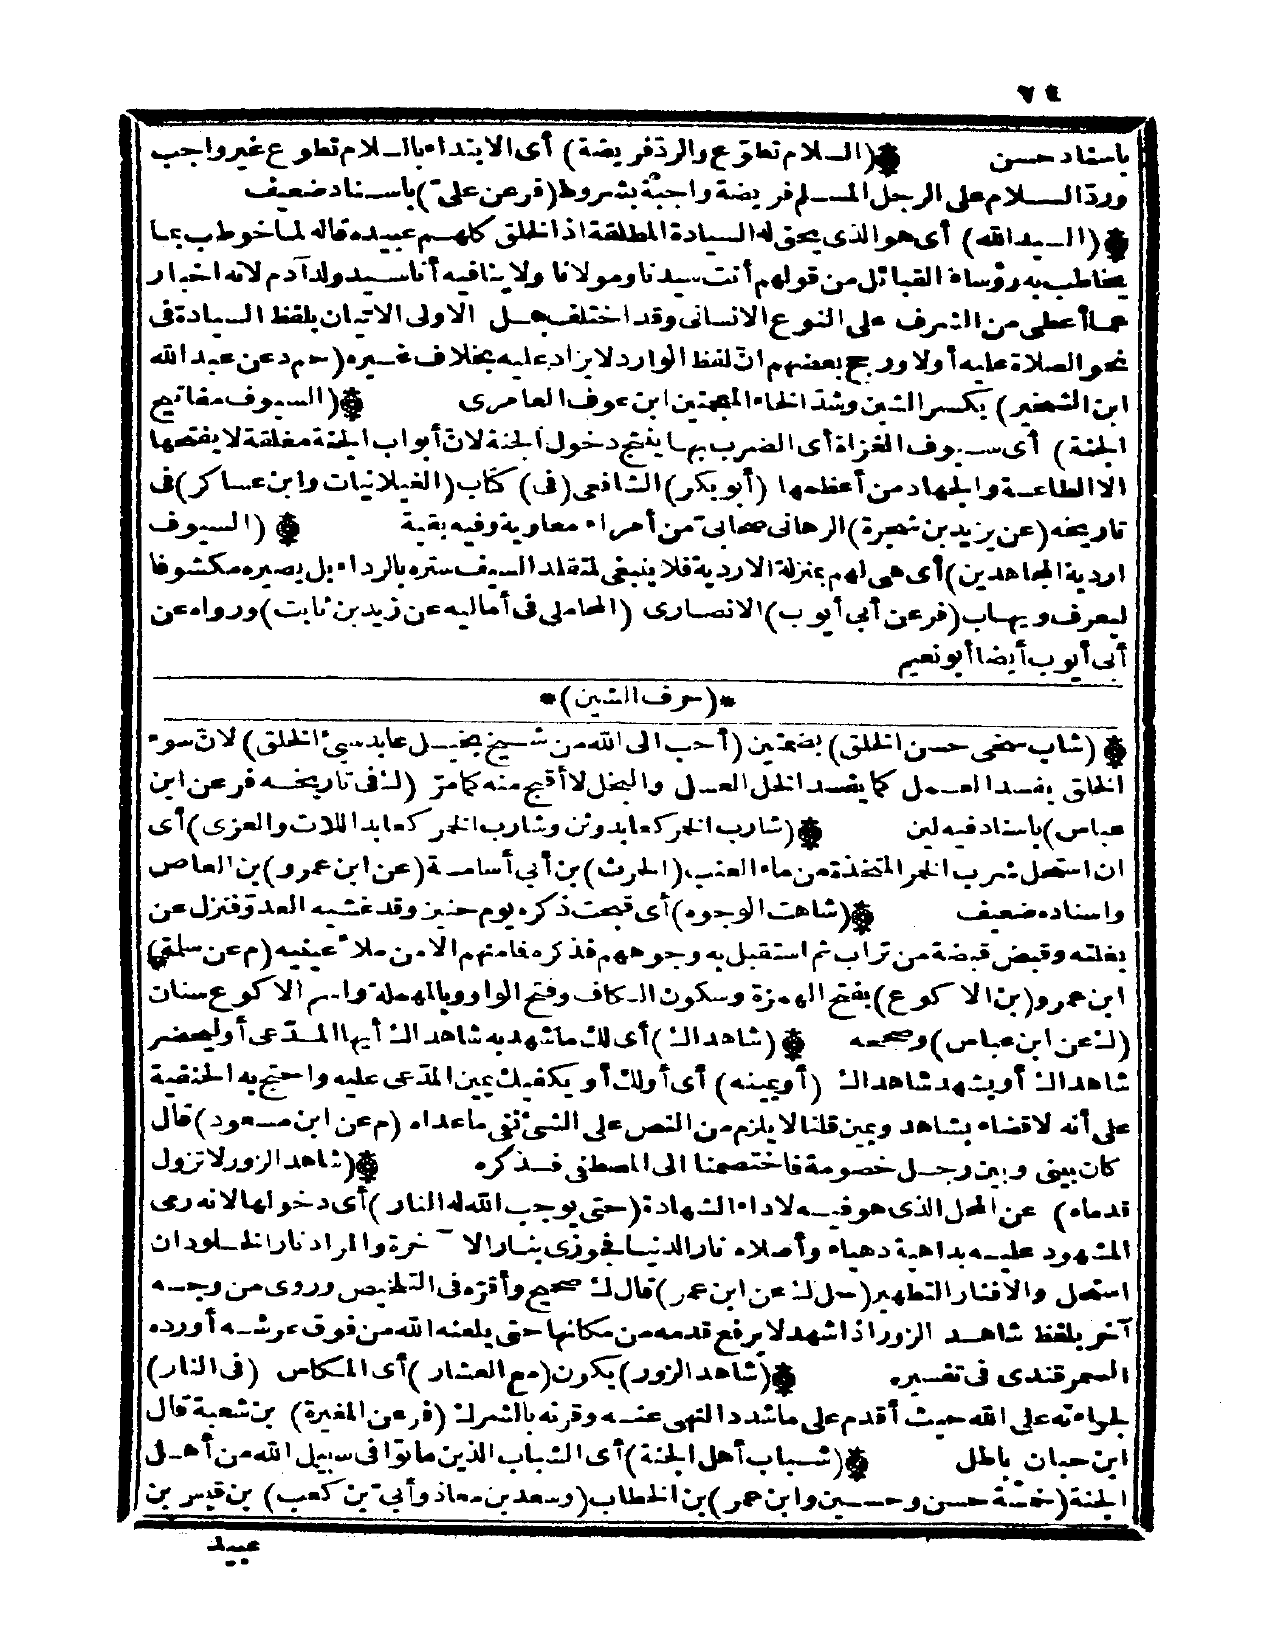 ٧٤
باسناد حسن (السلام تطوّع والردّ فريضة) أى الابتداء بالسلام تطوع غير واجب
وردّ السلام على الرجل المسلم فريضة واجبة بشروط (فر عن علىّ) باسناد ضعيف
(السيد الله) أى هو الذى يحق له السيادة المطلقة اذ الخلق كلهم عبيده قاله لما خوطب بما
يخاطب به رؤساء القبائل من قولهم أنت سيدنا ومولانا ولا ينافيه أنا سيد ولد آدم لانه اخبار
عما أعطى من الشرف على النوع الانسانى وقد اختلف هل الاولى الاتيان بلفظ السيادة فى
نحو الصلاة عليه أولا ورجح بعضهم انّ لفظ الوارد لا يزاد عليه بخلاف غيره (حم د عن عبد الله
ابن الشخير) بكسر الشين وشدّ الخاء المعجمتين ابن عوف العامرى (السيوف مفاتيح
الجنة) أى سيوف الغزاة أى الضرب بها يفتح دخول الجنة لانّ أبواب الجنة مغلقة لا يفتحها
الا الطاعة والجهاد من أعظمها (أبو بكر) الشافعى (فى) كتاب (الغيلانيات وابن عساكر) فى
تاريخه (عن يزيد بن شجرة) الرهانى صحابىّ من أمراء معاوية وفيه بقية (السيوف
اردية المجاهدين) أى هى لهم بمنزلة الاردية فلا ينبغى لمتقلد السيف ستره بالرداء بل يصيره مكشوفا
ليعرف ويهاب (فر عن أبى أيوب) الانصارى (المحاملى فى أماليه عن زيد بن ثابت) ورواه عن
أبى أيوب أيضا أبو نعيم
*(حرف الشين)*
(شاب سخى حسن الخلق) بضمتين (أحب الى الله من شيخ بخيل عابد سيئ الخلق) لانّ سوء
الخلق يفسد العمل كما يفسد الخل العسل والبخل لا أقبح منه كما مرّ (ك فى تاريخه فر عن ابن
عباس) باسناد فيه لين (شارب الخمر كعابد وثن وشارب الخمر كعابد اللات والعزى) أى
ان استحل شرب الخمر المتخذة من ماء العنب (الحرث) بن أبى أسامة (عن ابن عمرو) بن العاص
واسناده ضعيف (شاهت الوجوه) أى قبحت ذكره يوم حنين وقد غشيه العدوّ فنزل عن
بغلته وقبض قبضة من تراب ثم استقبل به وجوههم فذكره فما منهم الا من ملأ عينيه (م عن سلمة)
ابن عمرو (بن الاكوع) بفتح الهمزة وسكون الكاف وفتح الواو وبالمهملة واسم الاكوع سنان
(ك عن ابن عباس) وصححه (شاهداك) أى لك ما شهد به شاهداك أيها المدّعى أو ليحضر
شاهداك أو يشهد شاهداك (أو يمينه) أى أو لك أو يكفيك يمين المدّعى عليه واحتج به الحنفية
على أنه لا قضاء بشاهد ويمين قلنا لا يلزم من النص على الشئ نفى ما عداه (م عن ابن مسعود) قال
كان بينى وبين رجل خصومة فاختصمنا الى المصطفى فذكره (شاهد الزور لا تزول
قدماه) عن المحل الذى هو فيه لاداء الشهادة (حتى يوجب الله له النار) أى دخولها لانه رمى
المشهود عليه بداهية دهياء وأصلاه نار الدنيا فجوزى بنار الآخرة والمراد نار الخلود ان
استحل والا فنار التطهير (حل ك عن ابن عمر) قال ك صحيح وأقرّه فى التلخيص وروى من وجه
آخر بلفظ شاهد الزور اذا شهد لا يرفع قدمه من مكانها حتى يلعنه الله من فوق عرشه أورده
السمرقندى فى تفسيره (شاهد الزور) يكون (مع العشار) أى المكاس (فى النار)
لجراءته على الله حيث أقدم على ما شدد النهى عنه وقرنه بالشرك (فر عن المغيرة) بن شعبة قال
ابن حبان باطل (شباب أهل الجنة) أى الشباب الذين ماتوا فى سبيل الله من أهل
الجنة (خمسة حسن وحسين وابن عمر) بن الخطاب (وسعد بن معاذ وأبىّ بن كعب) بن قيس بن
عبيد